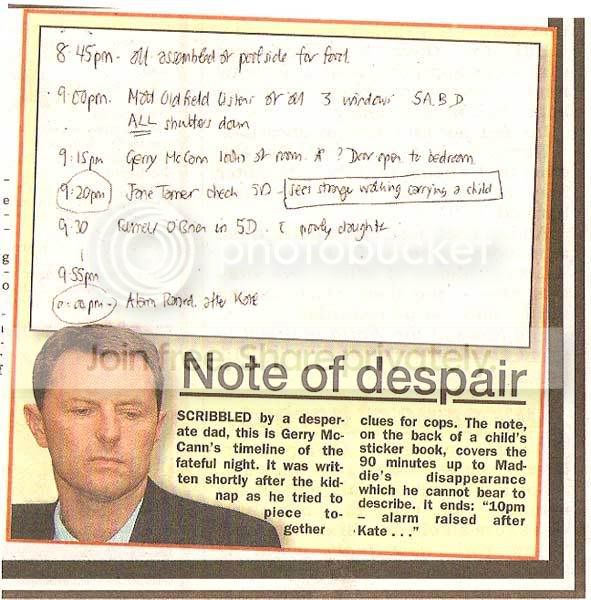 8.45pm - all assembled at poolside for food.
9.00pm. Matt Oldfield listens at all 3 windows 5A.B.D
ALL shutters down
9.15pm Gerry McCann looks at room A ? Door open to bedroom
9.20pm Jane Tanner check 5D - sees stranger walking carrying a child
9.30 Russell O'Brien in 5D. poorly daughter
9.55pm
10.00pm - Alarm Raised after Kate
photobucket
Join free. Share privately.
Note of despair
SCRIBBLED by a desper-
ate dad, this is Gerry Mc-
Cann's timeline of the
fateful night. It was writ-
ten shortly after the kid-
nap as he tried to
piece to-
gether
clues for cops. The note,
on the back of a child's
sticker book, covers the
90 minutes up to Mad-
die's disappearance
which he cannot bear to
describe. It ends: "10pm
– alarm raised after
Kate . . ."